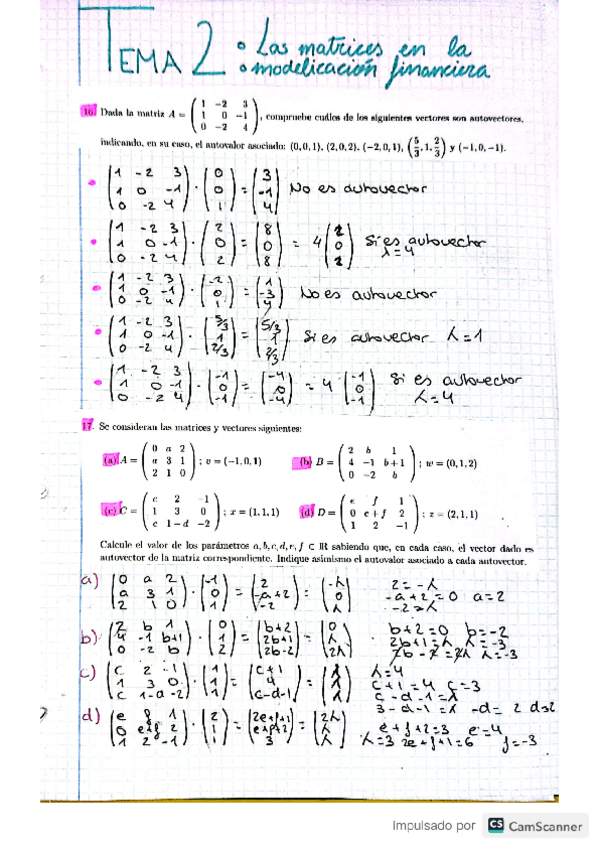 TEMA 2 : Las matrices en la
modelicación financiera
16. Dada la matriz A = ( 1 −2 3 ; 1 0 −1 ; 0 −2 4 ), compruebe cuáles de los siguientes vectores son autovectores,
indicando, en su caso, el autovalor asociado: (0,0,1), (2,0,2), (−2,0,1), (5/3, 1, 2/3) y (−1,0,−1).
(1 -2 3 ; 1 0 -1 ; 0 -2 4) · (0 ; 0 ; 1) = (3 ; -1 ; 4) No es autovector
(1 -2 3 ; 1 0 -1 ; 0 -2 4) · (2 ; 0 ; 2) = (8 ; 0 ; 8) = 4 (2 ; 0 ; 2) Sí es autovector λ=4
(1 -2 3 ; 1 0 -1 ; 0 -2 4) · (-2 ; 0 ; 1) = (1 ; -3 ; 4) No es autovector
(1 -2 3 ; 1 0 -1 ; 0 -2 4) · (5/3 ; 1 ; 2/3) = (5/3 ; 1 ; 2/3) Si es autovector λ=1
(1 -2 3 ; 1 0 -1 ; 0 -2 4) · (-1 ; 0 ; -1) = (-4 ; 0 ; -4) = 4 · (-1 ; 0 ; -1) Si es autovector λ=4
17. Se consideran las matrices y vectores siguientes:
(a) A = ( 0 a 2 ; a 3 1 ; 2 1 0 ) ; v = (−1,0,1) (b) B = ( 2 b 1 ; 4 −1 b+1 ; 0 −2 b ) ; w = (0,1,2)
(c) C = ( c 2 −1 ; 1 3 0 ; c 1−d −2 ) ; x = (1,1,1) (d) D = ( e f 1 ; 0 e+f 2 ; 1 2 −1 ) ; z = (2,1,1)
Calcule el valor de los parámetros a, b, c, d, e, f ⊂ ℝ sabiendo que, en cada caso, el vector dado es
autovector de la matriz correspondiente. Indique asimismo el autovalor asociado a cada autovector.
a) (0 a 2 ; a 3 1 ; 2 1 0) · (-1 ; 0 ; 1) = (2 ; -a+2 ; -2) = (-λ ; 0 ; λ) 2=-λ
-a+2=0 a=2
-2=λ
b) (2 b 1 ; 4 -1 b+1 ; 0 -2 b) · (0 ; 1 ; 2) = (b+2 ; 2b+1 ; 2b-2) = (0 ; λ ; 2λ) b+2=0 b=-2
2b+1=λ λ=-3
2b-2=2λ λ=-3
c) (c 2 -1 ; 1 3 0 ; c 1-d -2) · (1 ; 1 ; 1) = (c+1 ; 4 ; c-d-1) = (λ ; λ ; λ) λ=4
c+1=4 c=3
c-d-1=λ
3-d-1=λ -d=2
d) (e f 1 ; 0 e+f 2 ; 1 2 -1) · (2 ; 1 ; 1) = (2e+f+1 ; e+f+2 ; 3) = (2λ ; λ ; λ) e+f+2=3 e=4
λ=3 2e+f+1=6 f=-3
Impulsado por CS CamScanner